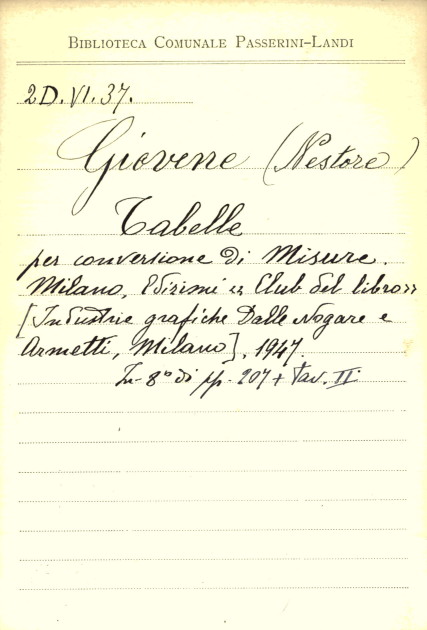 BIBLIOTECA COMUNALE PASSERINI-LANDI
2D.VI.37.
Giovene (Nestore)
Tabelle
per conversione di Misure.
Milano, Edizioni « Club del libro»
[Industrie grafiche Dalle Nogare e
Armetti, Milano], 1947.
In-8° di pp. 207 + Tav. II